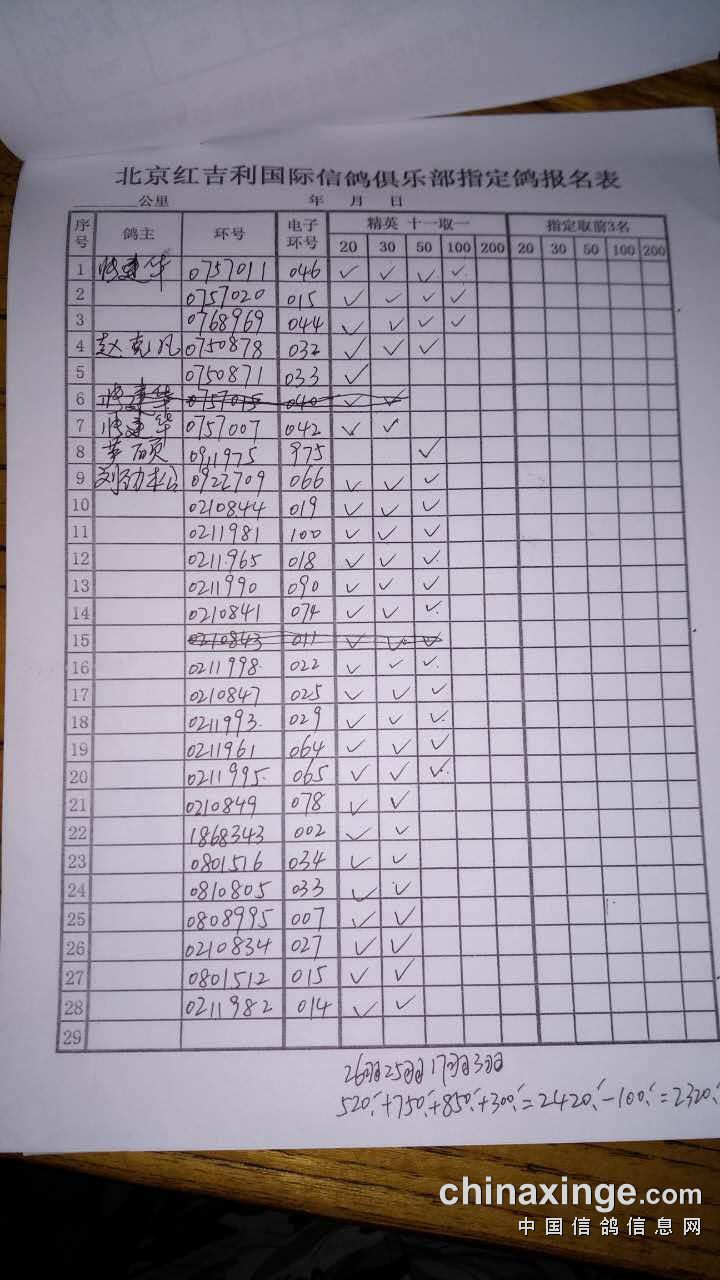 北京红吉利国际信鸽俱乐部指定鸽报名表
公里 年 月 日
序号 鸽主 环号 电子环号 精英 十一取一 指定取前3名
20 30 50 100 200 20 30 50 100 200
1 建华 0757011 046 ✓ ✓ ✓ ✓
2 0757020 015 ✓ ✓ ✓ ✓
3 0768969 044 ✓ ✓ ✓ ✓
4 赵克凡 0750878 032 ✓ ✓ ✓
5 0750871 033 ✓
6 建华 0757015 040 ✓ ✓
7 建华 0757007 042 ✓ ✓
8 硕 0911975 975 ✓
9 刘劲松 0922709 066 ✓ ✓ ✓
10 0210844 019 ✓ ✓ ✓
11 0211981 100 ✓ ✓ ✓
12 0211965 018 ✓ ✓ ✓
13 0211990 090 ✓ ✓ ✓
14 0210841 074 ✓ ✓ ✓
15 0210843 011 ✓ ✓ ✓
16 0211998 022 ✓ ✓ ✓
17 0210847 025 ✓ ✓ ✓
18 0211993 029 ✓ ✓ ✓
19 0211961 064 ✓ ✓ ✓
20 0211995 065 ✓ ✓ ✓
21 0210849 078 ✓ ✓
22 1868343 002 ✓ ✓
23 0801516 034 ✓ ✓
24 0810805 033 ✓ ✓
25 0808995 007 ✓ ✓
26 0210834 027 ✓ ✓
27 0801512 015 ✓ ✓
28 0211982 014 ✓ ✓
29
26羽25羽17羽3羽
520+750+850+300=2420-100=2320
chinaxinge.com
中国信鸽信息网